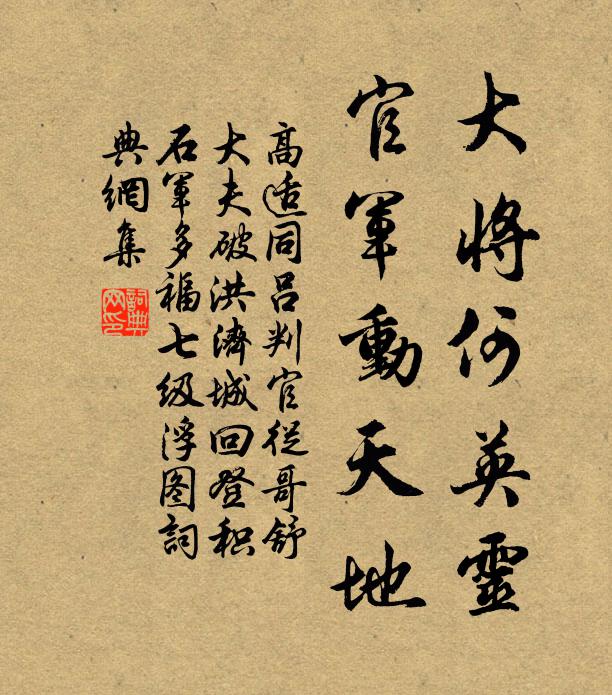 大將何英靈
官軍動天地
高适同呂判官從哥舒
大夫破洪濟城回登积
石軍多福七级浮图詞
典網集
詞典
网印